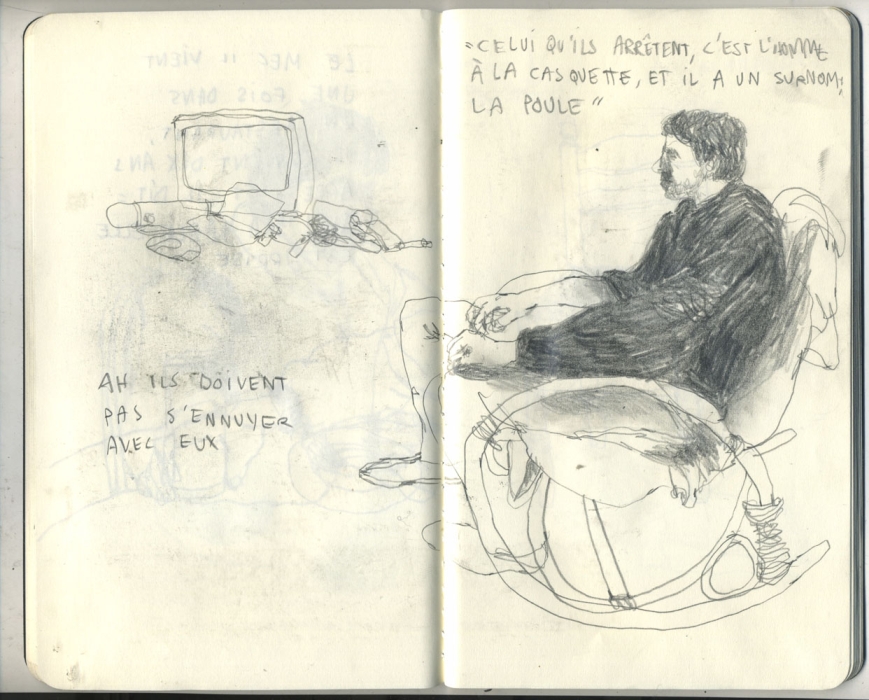 AH ILS DOIVENT
PAS S'ENNUYER
AVEC EUX
"CELUI QU'ILS ARRÊTENT, C'EST L'HOMME
À LA CASQUETTE, ET IL A UN SURNOM:
LA POULE"